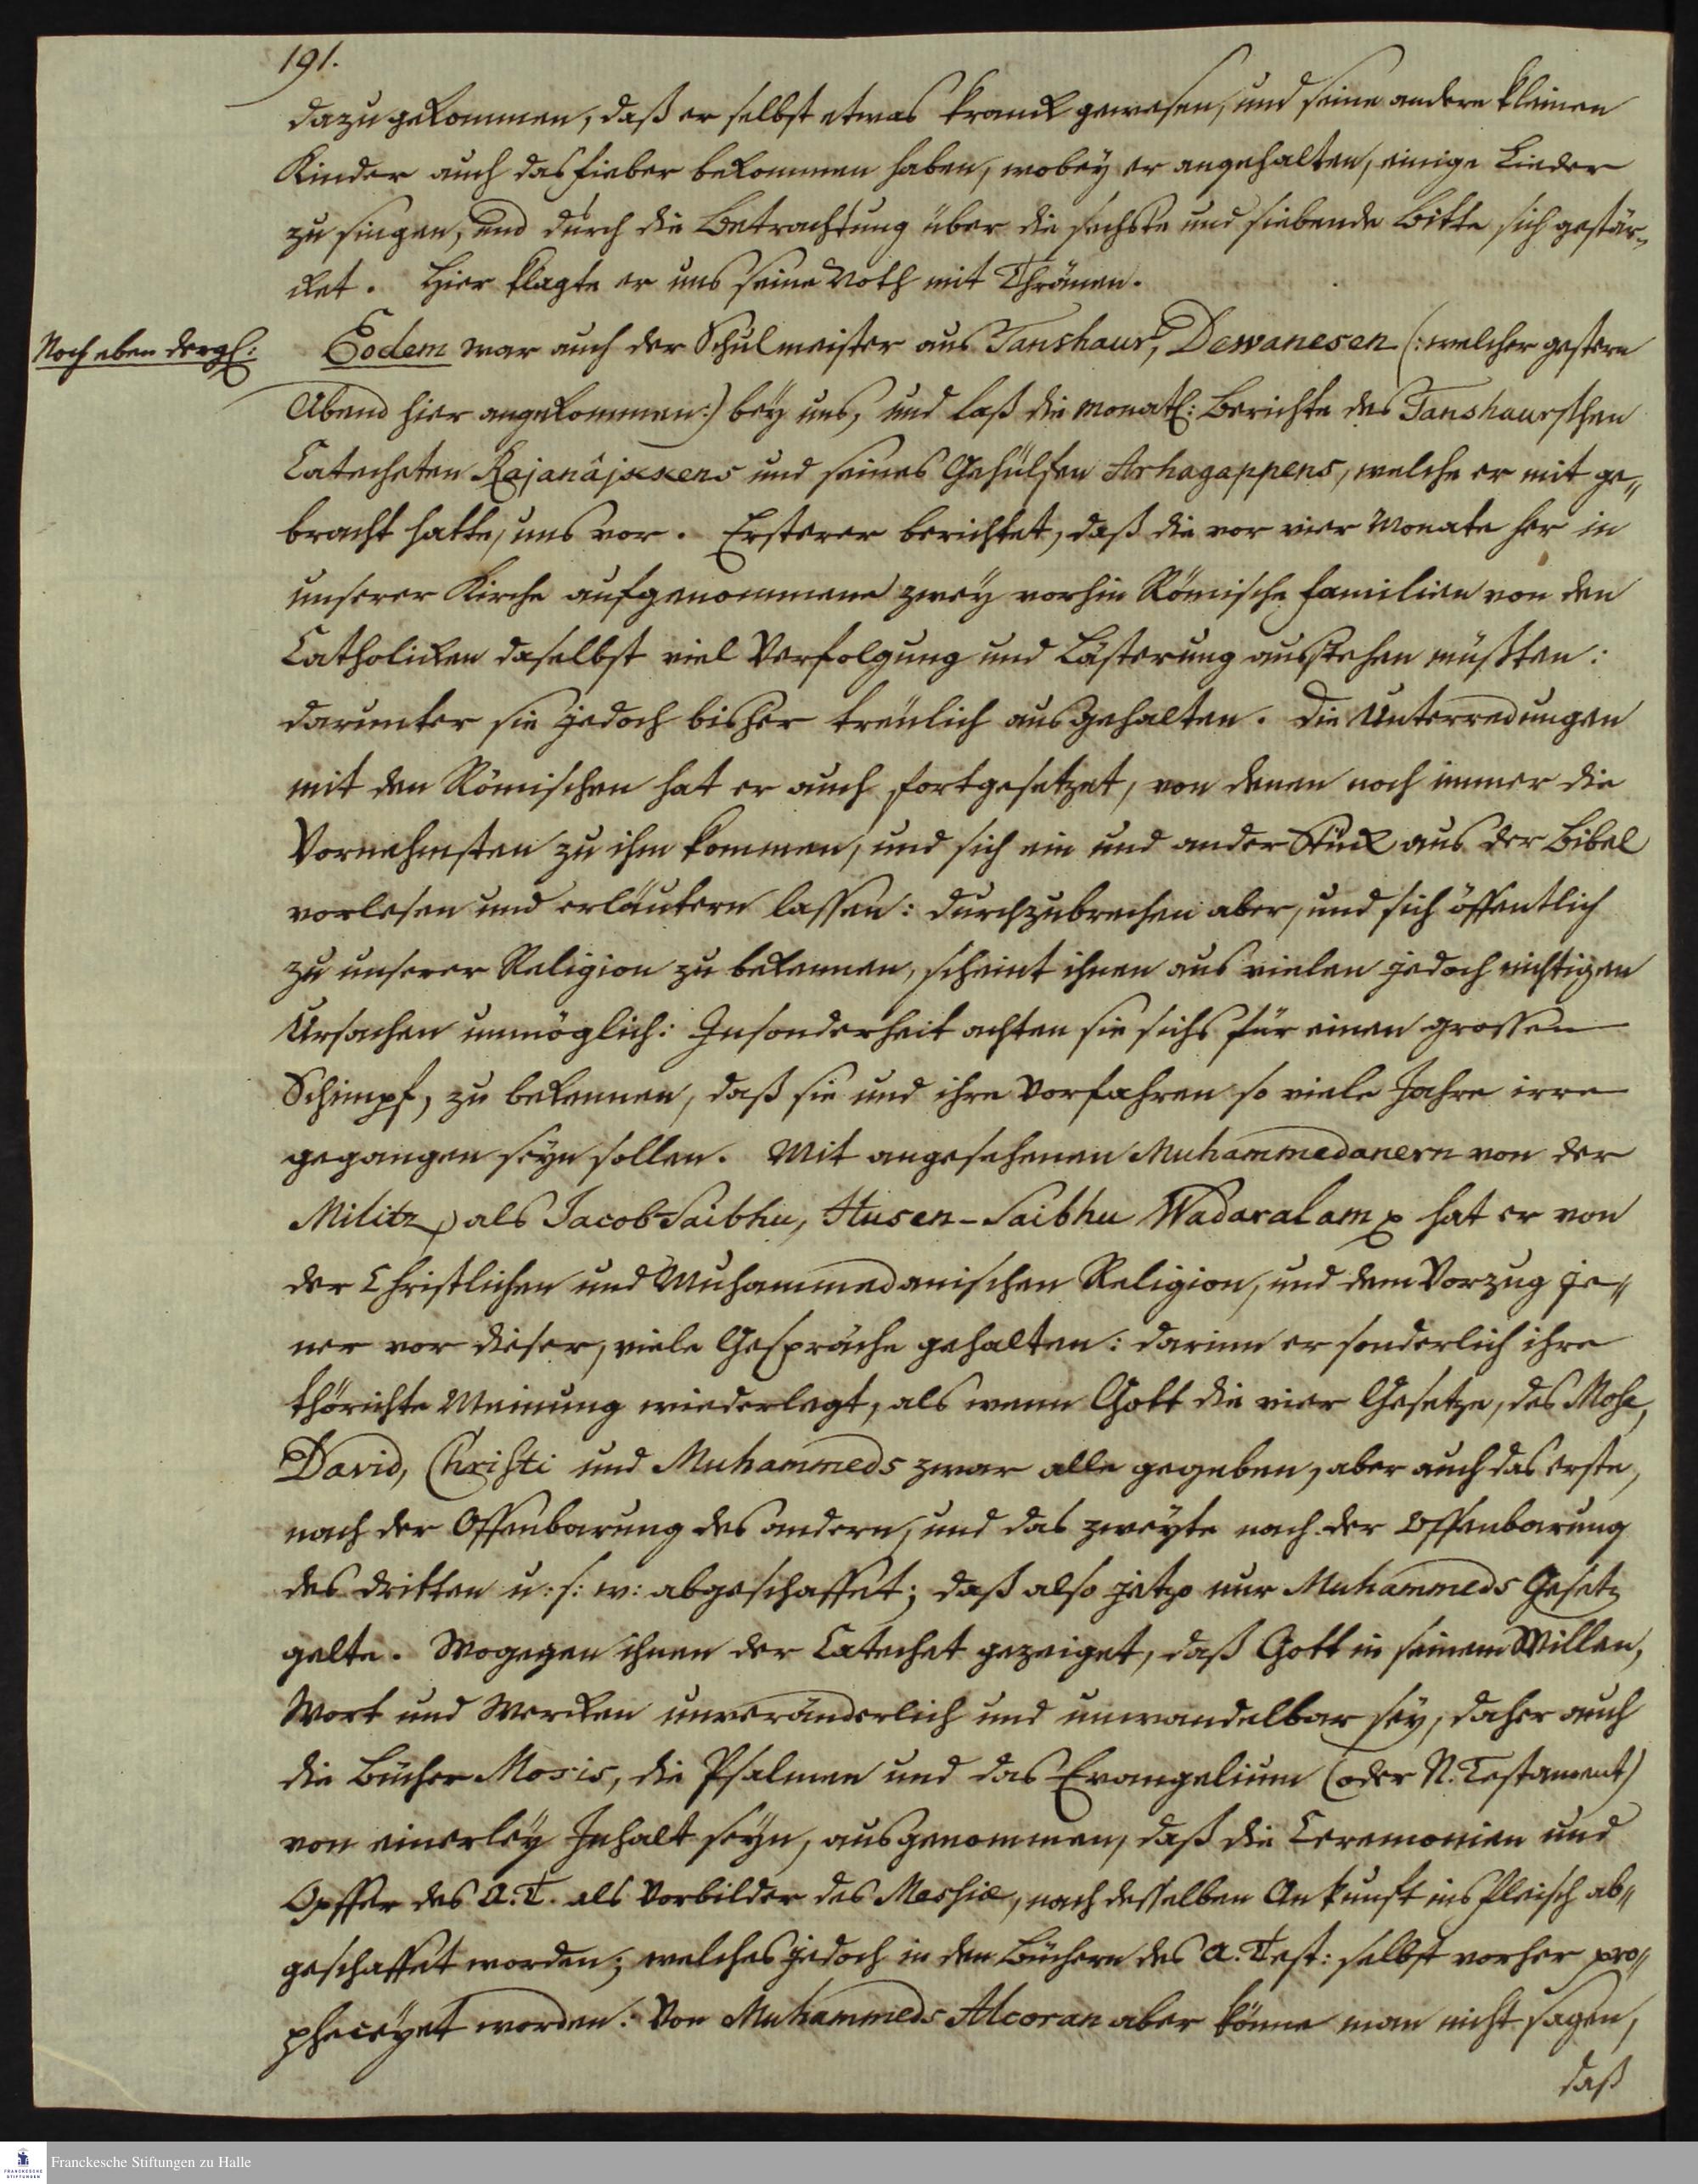 191.
dazu gekommen, daß er selbst etwas kranck gewesen, und seine andere kleinen
Kinder auch das fieber bekommen haben, wobey er angehalten, einige Lieder
zu singen, und durch die Betrachtung über die sechste und siebende Bitte sich gestär„
cket. Hier klagte er uns seine Noth mit Thränen.
Noch eben dergl:
Eodem war auch der Schulmeister aus Tanshaur, Dewanesen (: welcher gestern
Abend hier angekommen :) bey uns, und laß die monatl: Berichte des Tanshaurschen
Catecheten Rajanâjkkens und seines Gehülfen Arhagappens, welche er mit ge„
bracht hatte, uns vor. Ersterer berichtet, daß die vor vier Monate her in
unserer Kirche aufgenommene zwey vorhin Römische familien von den
Catholicken daselbst viel Verfolgung und Lästerung ausstehen müßten:
darunter sie jedoch bisher treulich ausgehalten. Die Unterredungen
mit den Römischen hat er auch fortgesetzet, von denen noch immer die
Vornehmsten zu ihm kommen, und sich ein und ander Stück aus der Bibel
vorlesen und erläutern lassen: durchzubrechen aber, und sich öffentlich
zu unserer Religion zu bekennen, scheint ihnen aus vielen jedoch nichtigen
Ursachen unmöglich: Insonderheit achten sie sichs für einen grossen
Schimpf, zu bekennen, daß sie und ihre Vorfahren so viele Jahre irre
gegangen seyn sollen. Mit angesehenen Muhammedanern von der
Militz, als Jacob-Saibhu, Husen-Saibhu Wadaralam p hat er von
der Christlichen und Muhammedanischen Religion, und dem Vorzug je„
ner vor dieser, viele Gespräche gehalten: darinn er sonderlich ihre
thörichte Meinung wiederlegt, als wenn Gott die vier Gesetze, des Mose,
David, Christi und Muhammeds zwar alle gegeben, aber auch das erste,
nach der Offenbarung des andern, und das zweyte nach der Offenbarung
des dritten u: s: w: abgeschaffet; daß also jetzo nur Muhammeds Gesetz
gelte. Wogegen ihnen der Catechet gezeiget, daß Gott in seinem Willen,
Wort und Wercken unveränderlich und unwandelbar sey, daher auch
die Bücher Mosis, die Psalmen und das Evangelium (oder N. Testament)
von einerley Inhalt seyn, ausgenommen, daß die Ceremonien und
Opffer des A: T. als Vorbilder des Messiæ, nach desselben Ankunft ins Fleisch ab„
geschaffet worden; welches jedoch in den Büchern des A. Test: selbst vorher pro„
pheceyet worden: Von Muhammeds Alcoran aber könne man nicht sagen,
daß
Franckesche Stiftungen zu Halle
FRANCKESCHE
STIFTUNGEN